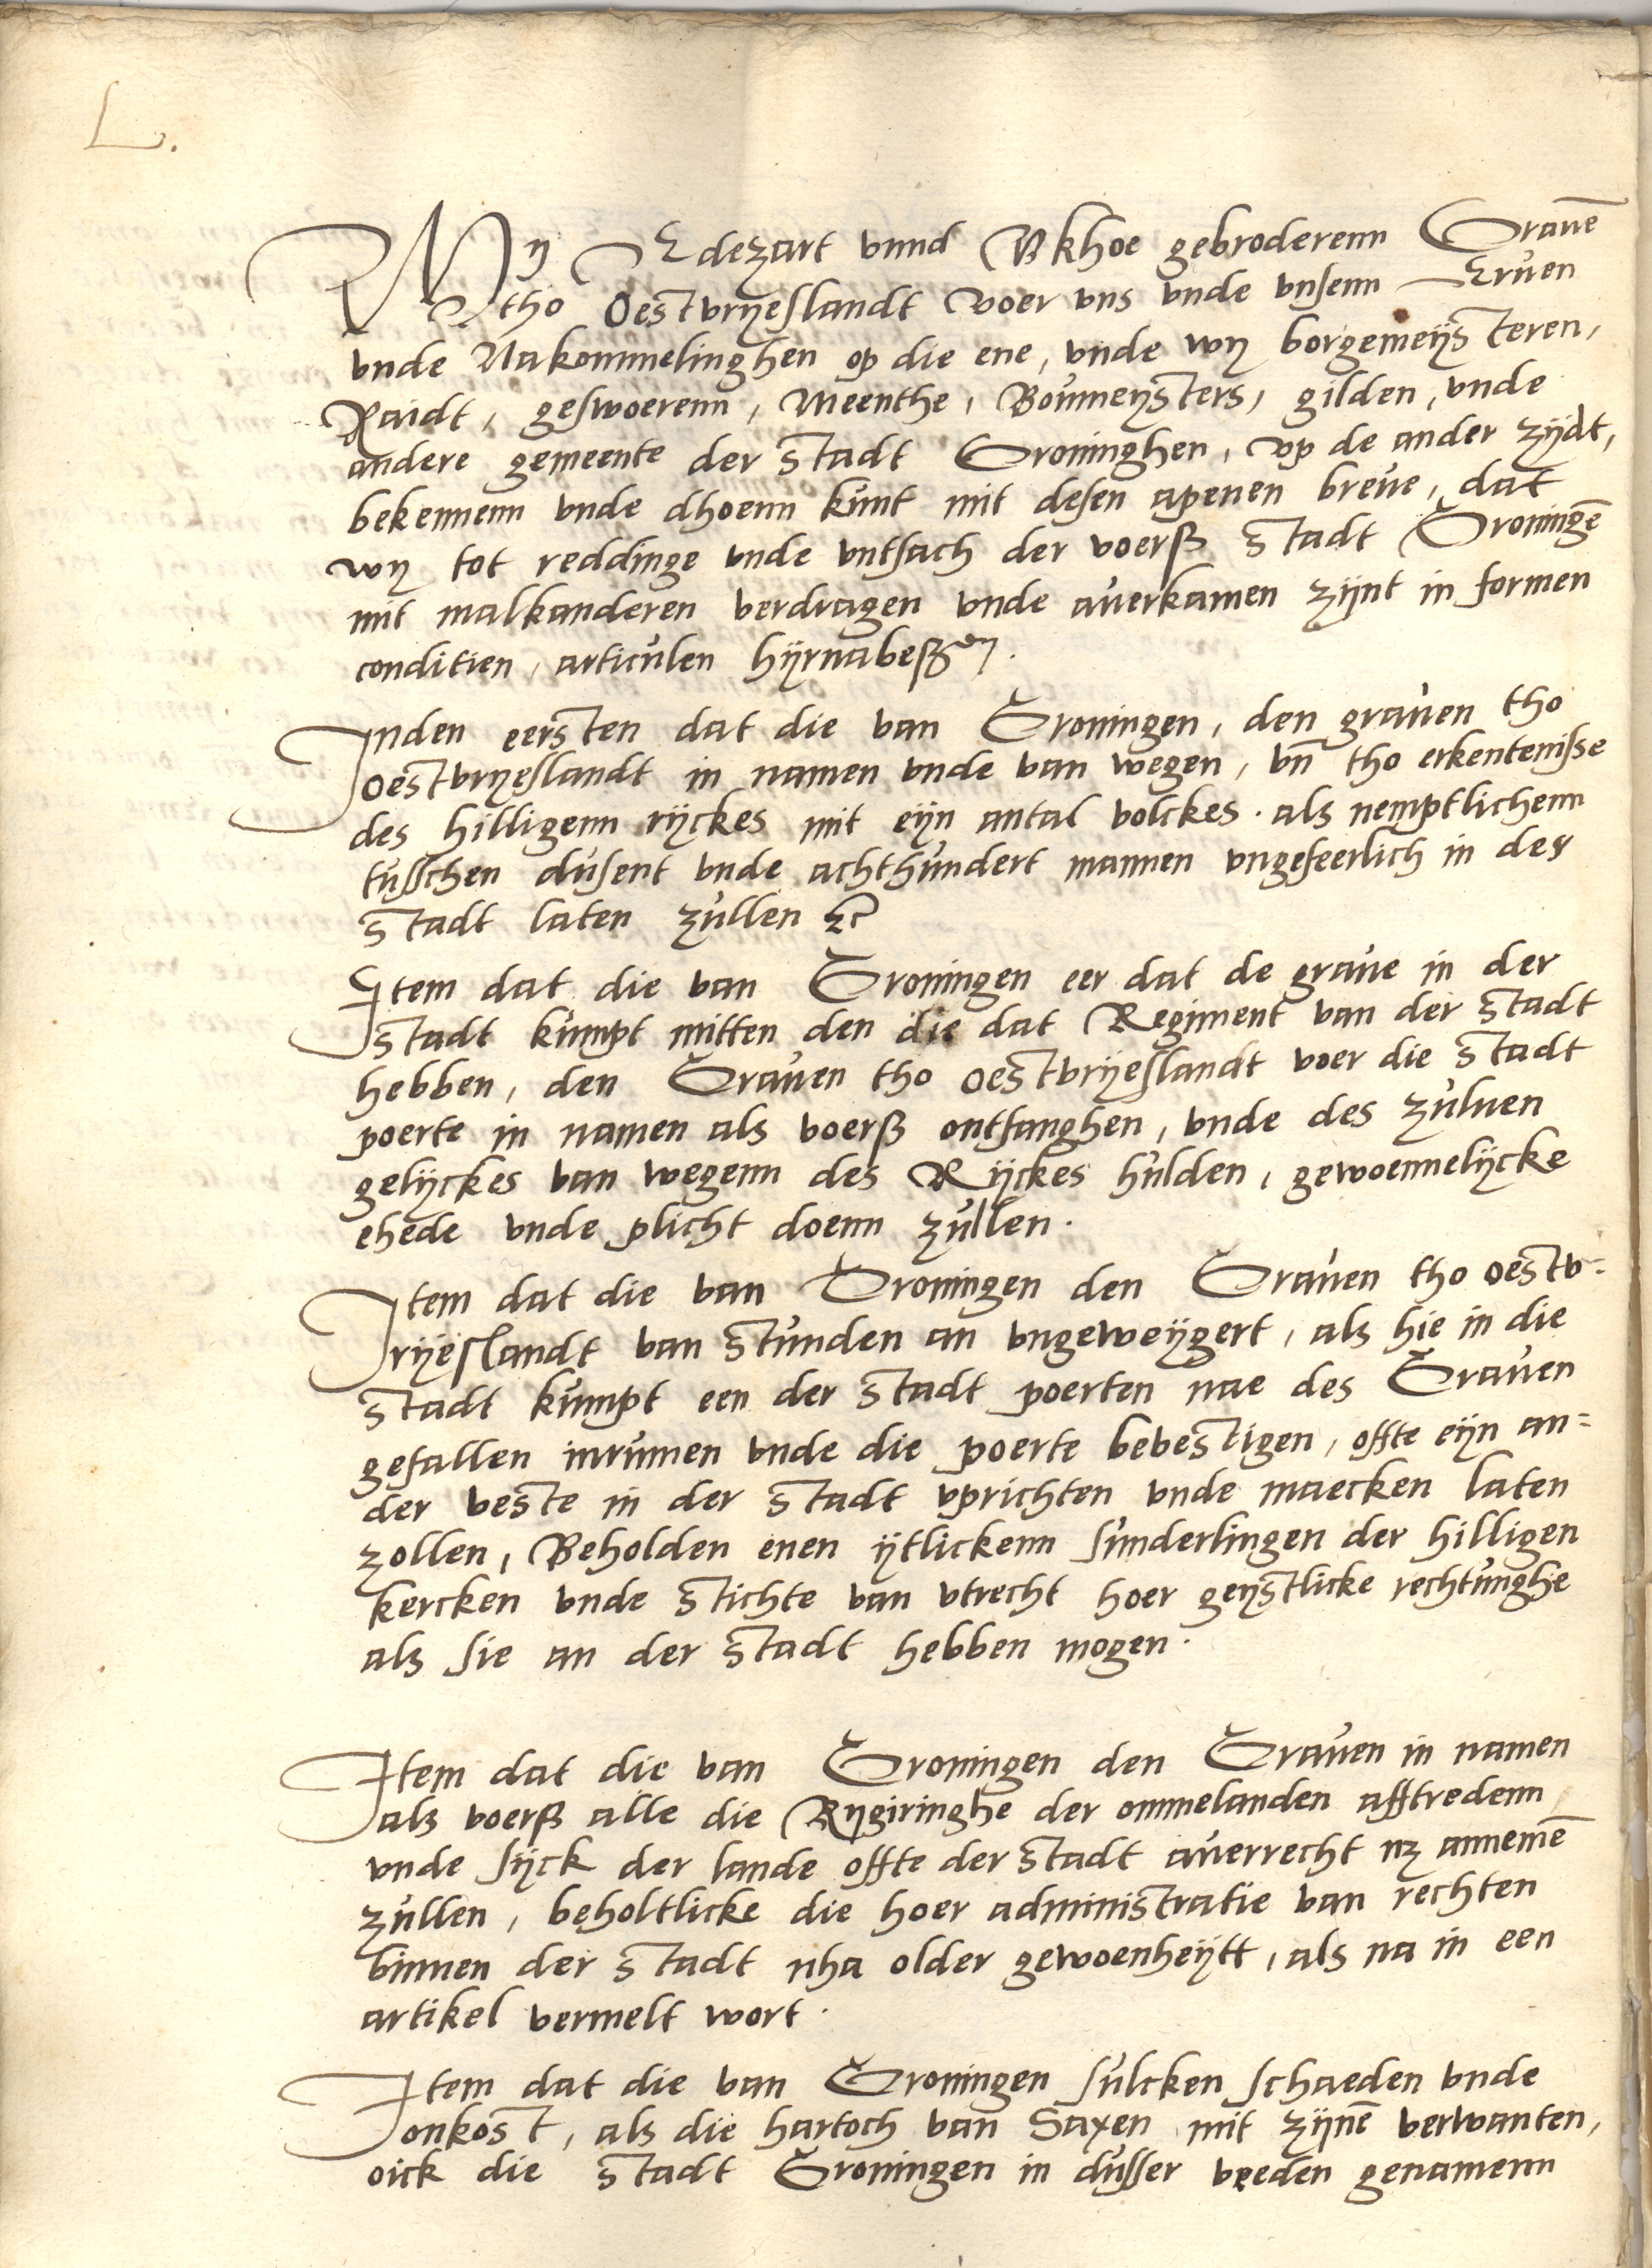 L.
Wy Edezart vnnd Vkhoe gebroderenn Grauē
tho Oestvryeslandt voer vns vnde vnsenn Eruen
vnde Nakommelinghen op die ene, vnde wy borgemeysteren,
Raidt, geswoerenn, Meenthe, Boumeysters, gilden, vnde
andere gemeente der Stadt Groninghen, vp de ander zydt,
bekennenn vnde dhoenn kunt mit desen apenen breue, dat
wy tot reddinge vnde vntsach der voerß Stadt Groningē
mit malkanderen verdragen vnde auerkamen zynt in formen
conditien, articulen hyrnabeß.
Inden eersten dat die van Groningen, den grauen tho
Oestvryeslandt in namen vnde van wegen, vn̄ tho erkentenisse
des hilligenn ryckes mit eyn antal volckes. als nemptlichenn
tusschen dusent vnde achthundert mannen vngefeerlich in der
Stadt laten zullen ꝛc
Item dat die van Groningen eer dat de graue in der
Stadt kumpt mitten den die dat Regiment van der Stadt
hebben, den Grauen tho Oestvryeslandt voer die Stadt
poerte in namen als voerß ontfanghen, vnde des zuluen
gelyckes van wegenn des Ryckes hulden, gewoennelycke
ehede vnde plicht doenn zullen.
Item dat die van Groningen den Grauen tho Oestv=
ryeslandt van stunden an vngeweygert, als hie in die
Stadt kumpt een der Stadt poerten nae des Grauen
gefallen inrumen vnde die poerte bevestigen, offte eyn an=
der veste in der Stadt vprichten vnde maecken laten
zollen, Beholden enen ytlickenn sunderlingen der hilligen
kercken vnde Stichte van vtrecht hoer geystlicke rechtunghe
als sie an der Stadt hebben mogen.
Item dat die van Groningen den Grauen in namen
als voerß alle die Rygiringhe der ommelanden afftredenn
vnde syck der lande offte der Stadt auerrecht nz annemē
zullen, beholtlicke die hoer administratie van rechten
binnen der Stadt nha older gewoenheytt, als na in een
artikel vermelt wort.
Item dat die van Groningen sulcken schaeden vnde
onkost, als die hartoch van Saxen mit zynē verwanten,
oick die Stadt Groningen in dusser veeden genamenn